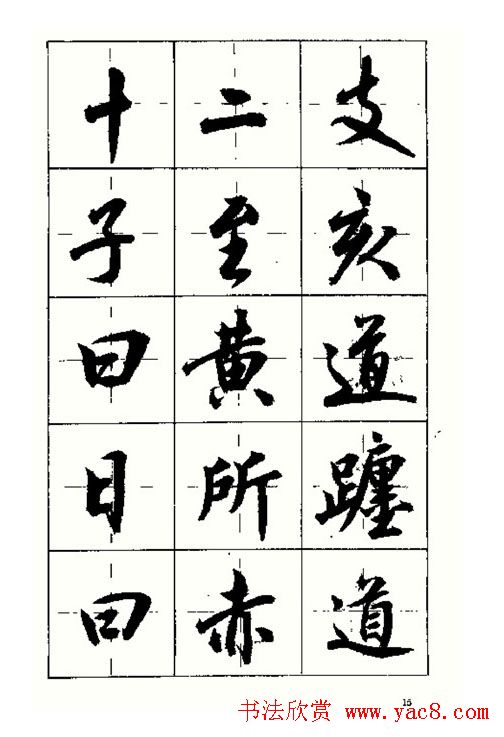 十二支
子至亥
曰黄道
日所躔
曰赤道
15
书法欣赏 www.yac8.com